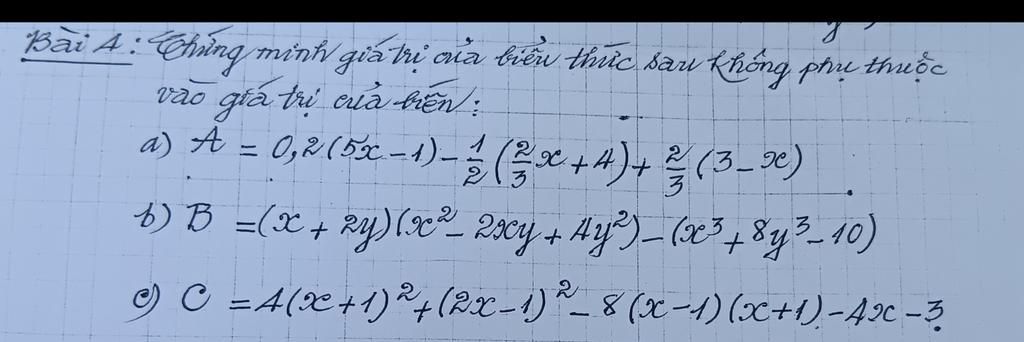 Bài 4: Chứng minh giá trị của biểu thức sau không phụ thuộc
vào giá trị của biến:
a) A = 0,2(5x-1) - 1/2 (2/3 x + 4) + 2/3 (3 - x)
b) B = (x + 2y)(x² - 2xy + 4y²) - (x³ + 8y³ - 10)
c) C = 4(x+1)² + (2x-1)² - 8(x-1)(x+1) - 4x - 3